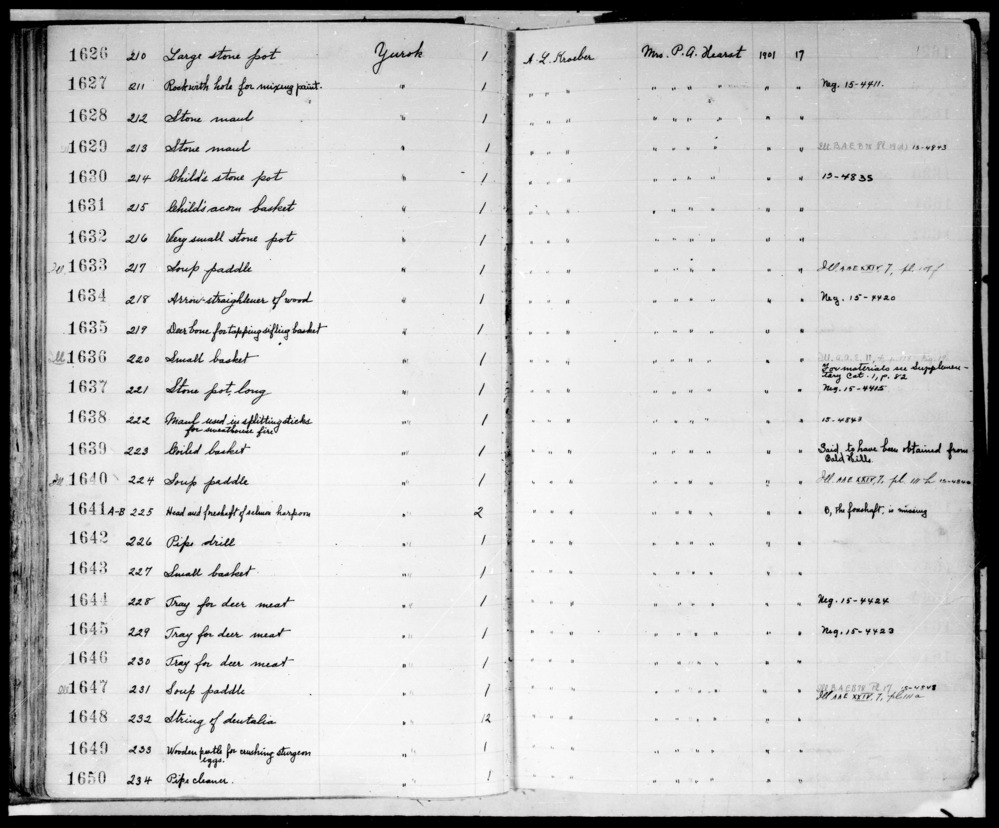 1626 210 Large stone pot Yurok 1 A. L. Kroeber Mrs. P. A. Hearst 1901 17
1627 211 Rock with hole for mixing paint. " 1 " " " " " " " " " Neg. 15-4411.
1628 212 Stone maul " 1 " " " " " " " " "
1629 213 Stone maul " 1 " " " " " " " " " Ill BAE BN 15-4843
1630 214 Child's stone pot " 1 " " " " " " " " " 15-4835
1631 215 Child's acorn basket " 1 " " " " " " " " "
1632 216 Very small stone pot " 1 " " " " " " " " "
Ill 1633 217 Soup paddle " 1 " " " " " " " " " Ill. AAE XXIV, 7, pl.
1634 218 Arrow-straightener of wood " 1 " " " " " " " " " Neg. 15-4420
1635 219 Deer bone for tapping sifting basket " 1 " " " " " " " " "
Ill 1636 220 Small basket " 1 " " " " " " " " " Ill.
For materials see Supplemen-
tary Cat. 1, p. 82
1637 221 Stone pot, long " 1 " " " " " " " " " Neg. 15-4415
1638 222 Maul used in splitting sticks " 1 " " " " " " " " " 15-4843
for sweathouse fire
1639 223 Coiled basket " 1 " " " " " " " " " Said to have been obtained from
Bald Hills.
Ill 1640 224 Soup paddle " 1 " " " " " " " " " Ill. AAE XXIV, 7, pl. 111 h 15-4840
1641 A-B 225 Head and foreshaft of salmon harpoon " 2 " " " " " " " " " B, the foreshaft, is missing
1642 226 Pipe drill " 1 " " " " " " " " "
1643 227 Small basket " 1 " " " " " " " " "
1644 228 Tray for deer meat " 1 " " " " " " " " " Neg. 15-4424
1645 229 Tray for deer meat " 1 " " " " " " " " " Neg. 15-4423
1646 230 Tray for deer meat " 1 " " " " " " " " "
Ill 1647 231 Soup paddle " 1 " " " " " " " " " Ill BAE BN Pl 17 15-4848
Ill AAE XXIV, 7, pl. 111 a
1648 232 String of dentalia " 12 " " " " " " " " "
1649 233 Wooden pestle for crushing sturgeon " 1 " " " " " " " " "
eggs.
1650 234 Pipe cleaner. " 1 " " " " " " " " "